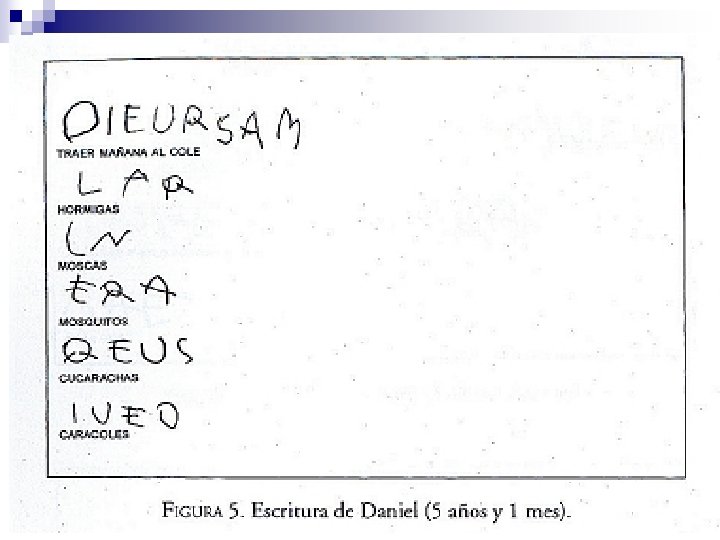 OIEURSAM
TRAER MAÑANA AL COLE
LAR
HORMIGAS
LN
MOSCAS
ERA
MOSQUITOS
QEUS
CUCARACHAS
IUEO
CARACOLES
FIGURA 5. Escritura de Daniel (5 años y 1 mes).